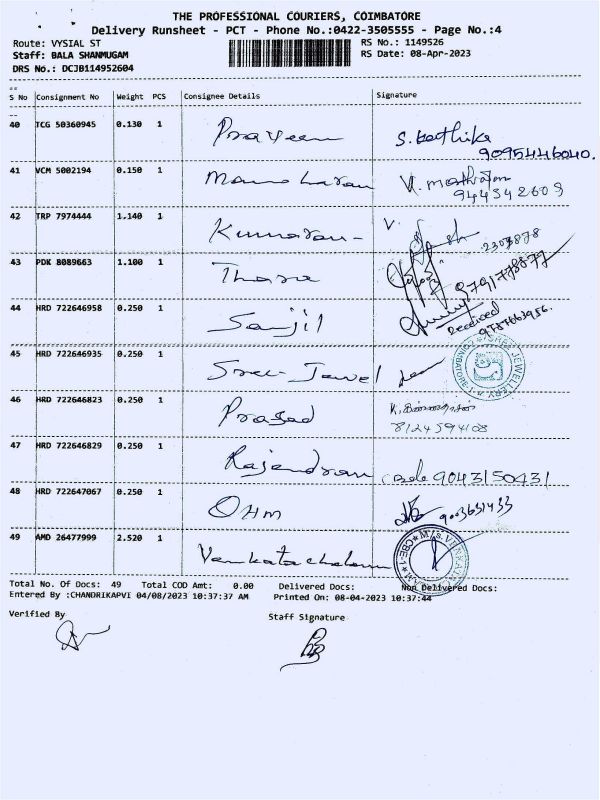 THE PROFESSIONAL COURIERS, COIMBATORE
Delivery Runsheet - PCT - Phone No.:0422-3505555 - Page No.:4
Route: VYSIAL ST RS No.: 1149526
Staff: BALA SHANMUGAM RS Date: 08-Apr-2023
DRS No.: DCJB114952604
S No Consignment No Weight PCS Consignee Details Signature
40 TCG 50360945 0.130 1 Praveen S. Keethika
9095446040.
41 VCM 5002194 0.150 1 Manoharan
944342609
42 TRP 7974444 1.140 1 Kumaran- V.
2303878
43 PDK 8089663 1.100 1 Thara
9791778877
44 HRD 722646958 0.250 1 Sanjil Received
9787663956.
45 HRD 722646935 0.250 1 Sree-Jewel
SREE JEWELLERY COIMBATORE-1
46 HRD 722646823 0.250 1 Prasad
8124594108
47 HRD 722646829 0.250 1 Rajendran 9043150431
48 HRD 722647067 0.250 1 OHM 9003631433
49 AMD 26477999 2.520 1 Venkatachalam
CBE-1
Total No. Of Docs: 49 Total COD Amt: 0.00 Delivered Docs: Non Delivered Docs:
Entered By :CHANDRIKAPVI 04/08/2023 10:37:37 AM Printed On: 08-04-2023 10:37:44
Verified By Staff Signature